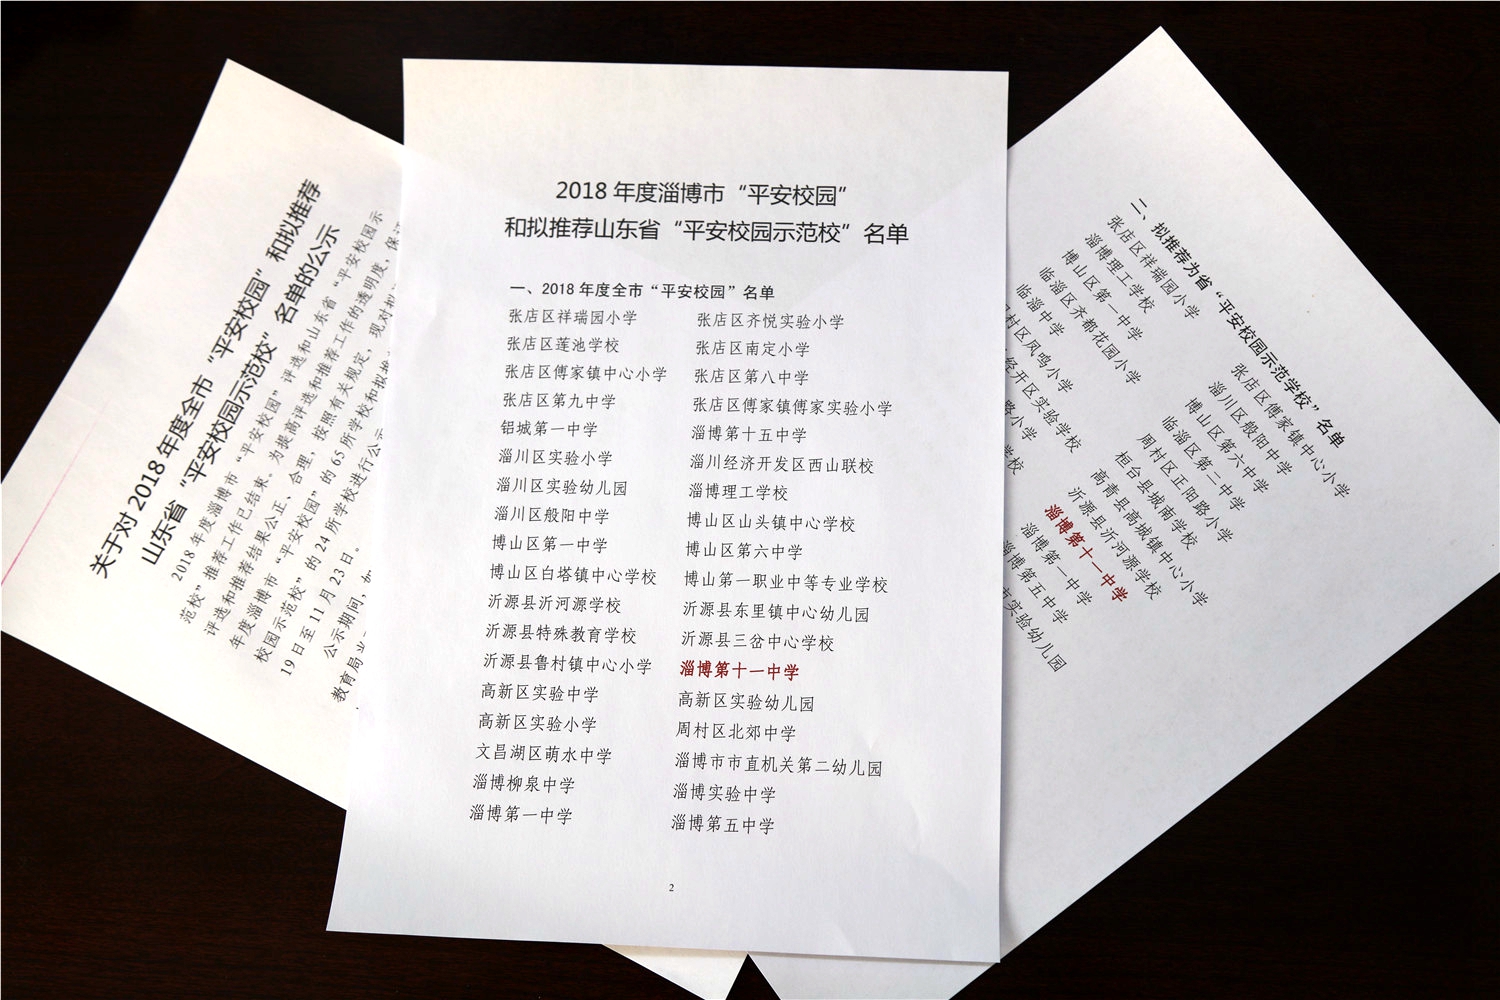 关于对 2018 年度全市“平安校园”和拟推荐
山东省“平安校园示范校”名单的公示
2018 年度淄博市“平安校园”评选和山东省“平安校园示
范校”推荐工作已结束。为提高评选和推荐工作的透明度，保证
评选和推荐结果公正、合理，按照有关规定，现对拟
年度淄博市“平安校园”的 65 所学校和拟推
校园示范校”的 24 所学校进行公示
19 日至 11 月 23 日。
公示期间，如
教育局业
2018 年度淄博市“平安校园”
和拟推荐山东省“平安校园示范校”名单
一、2018 年度全市“平安校园”名单
张店区祥瑞园小学 张店区齐悦实验小学
张店区莲池学校 张店区南定小学
张店区傅家镇中心小学 张店区第八中学
张店区第九中学 张店区傅家镇傅家实验小学
铝城第一中学 淄博第十五中学
淄川区实验小学 淄川经济开发区西山联校
淄川区实验幼儿园 淄博理工学校
淄川区般阳中学 博山区山头镇中心学校
博山区第一中学 博山区第六中学
博山区白塔镇中心学校 博山第一职业中等专业学校
沂源县沂河源学校 沂源县东里镇中心幼儿园
沂源县特殊教育学校 沂源县三岔中心学校
沂源县鲁村镇中心小学 淄博第十一中学
高新区实验中学 高新区实验幼儿园
高新区实验小学 周村区北郊中学
文昌湖区萌水中学 淄博市市直机关第二幼儿园
淄博柳泉中学 淄博实验中学
淄博第一中学 淄博第五中学
2
二、拟推荐为省“平安校园示范学校”名单
张店区祥瑞园小学 张店区傅家镇中心小学
淄博理工学校 淄川区般阳中学
博山区第一中学 博山区第六中学
临淄区齐都花园小学 临淄区第二中学
临淄中学 周村区正阳路小学
村区凤鸣小学 桓台县城南学校
经开区实验学校 高青县高城镇中心小学
路小学 沂源县沂河源学校
学校 淄博第十一中学
淄博第一中学
淄博第五中学
实验幼儿园